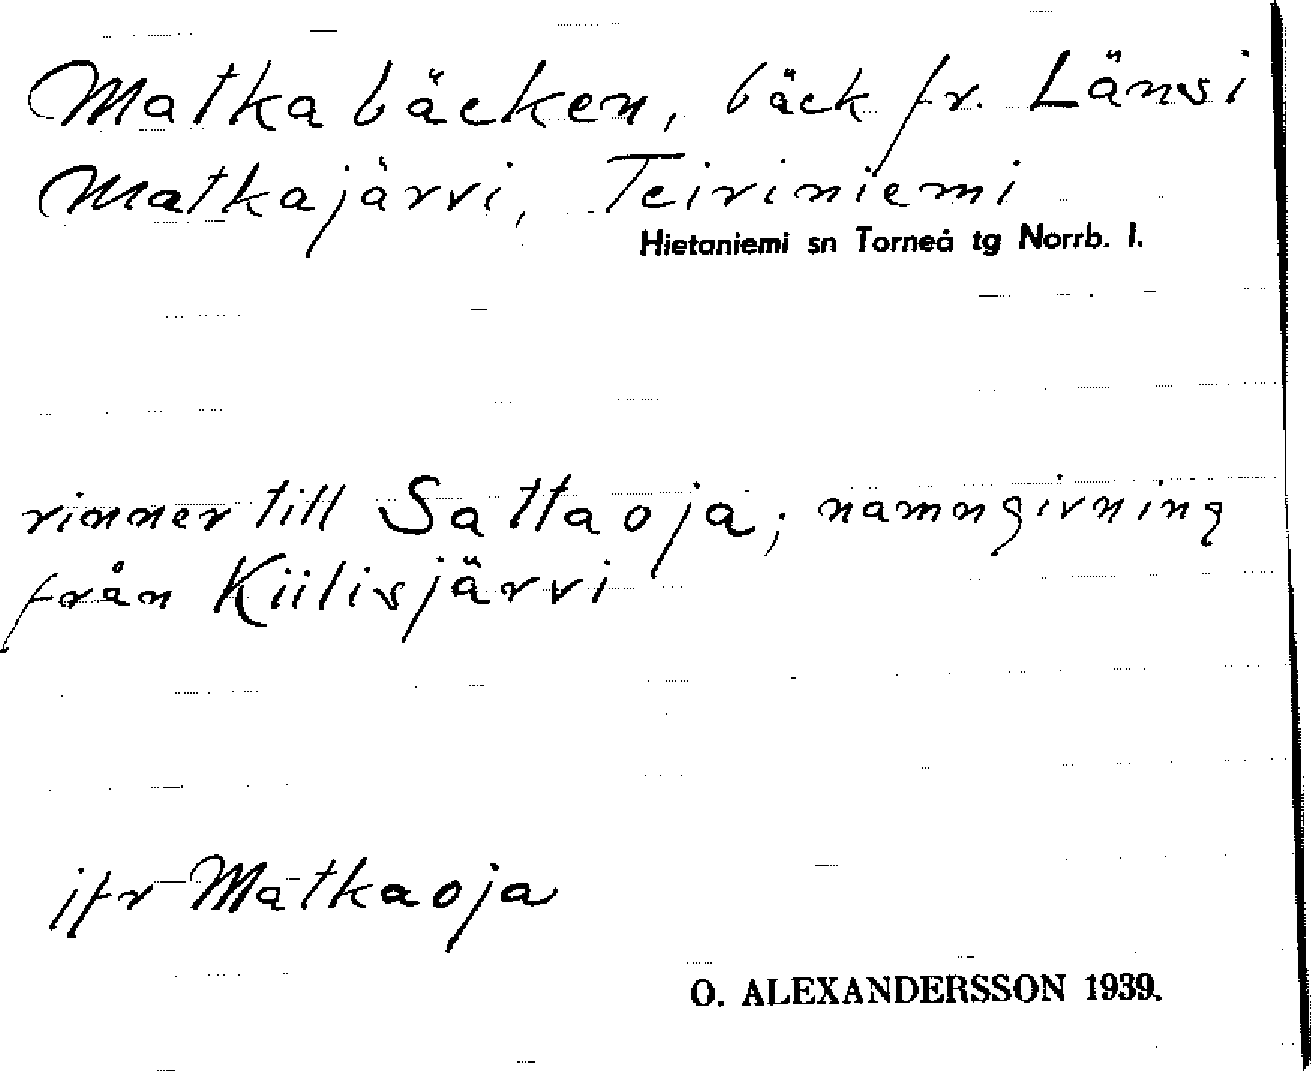 Matkabäcken, bäck fr. Länsi
Matkajärvi, Teiriniemi
Hietaniemi sn Torneå tg Norrb. l.
rinner till Sattaoja; namngivning
från Kiilisjärvi
jfr Matkaoja
O. ALEXANDERSSON 1939.